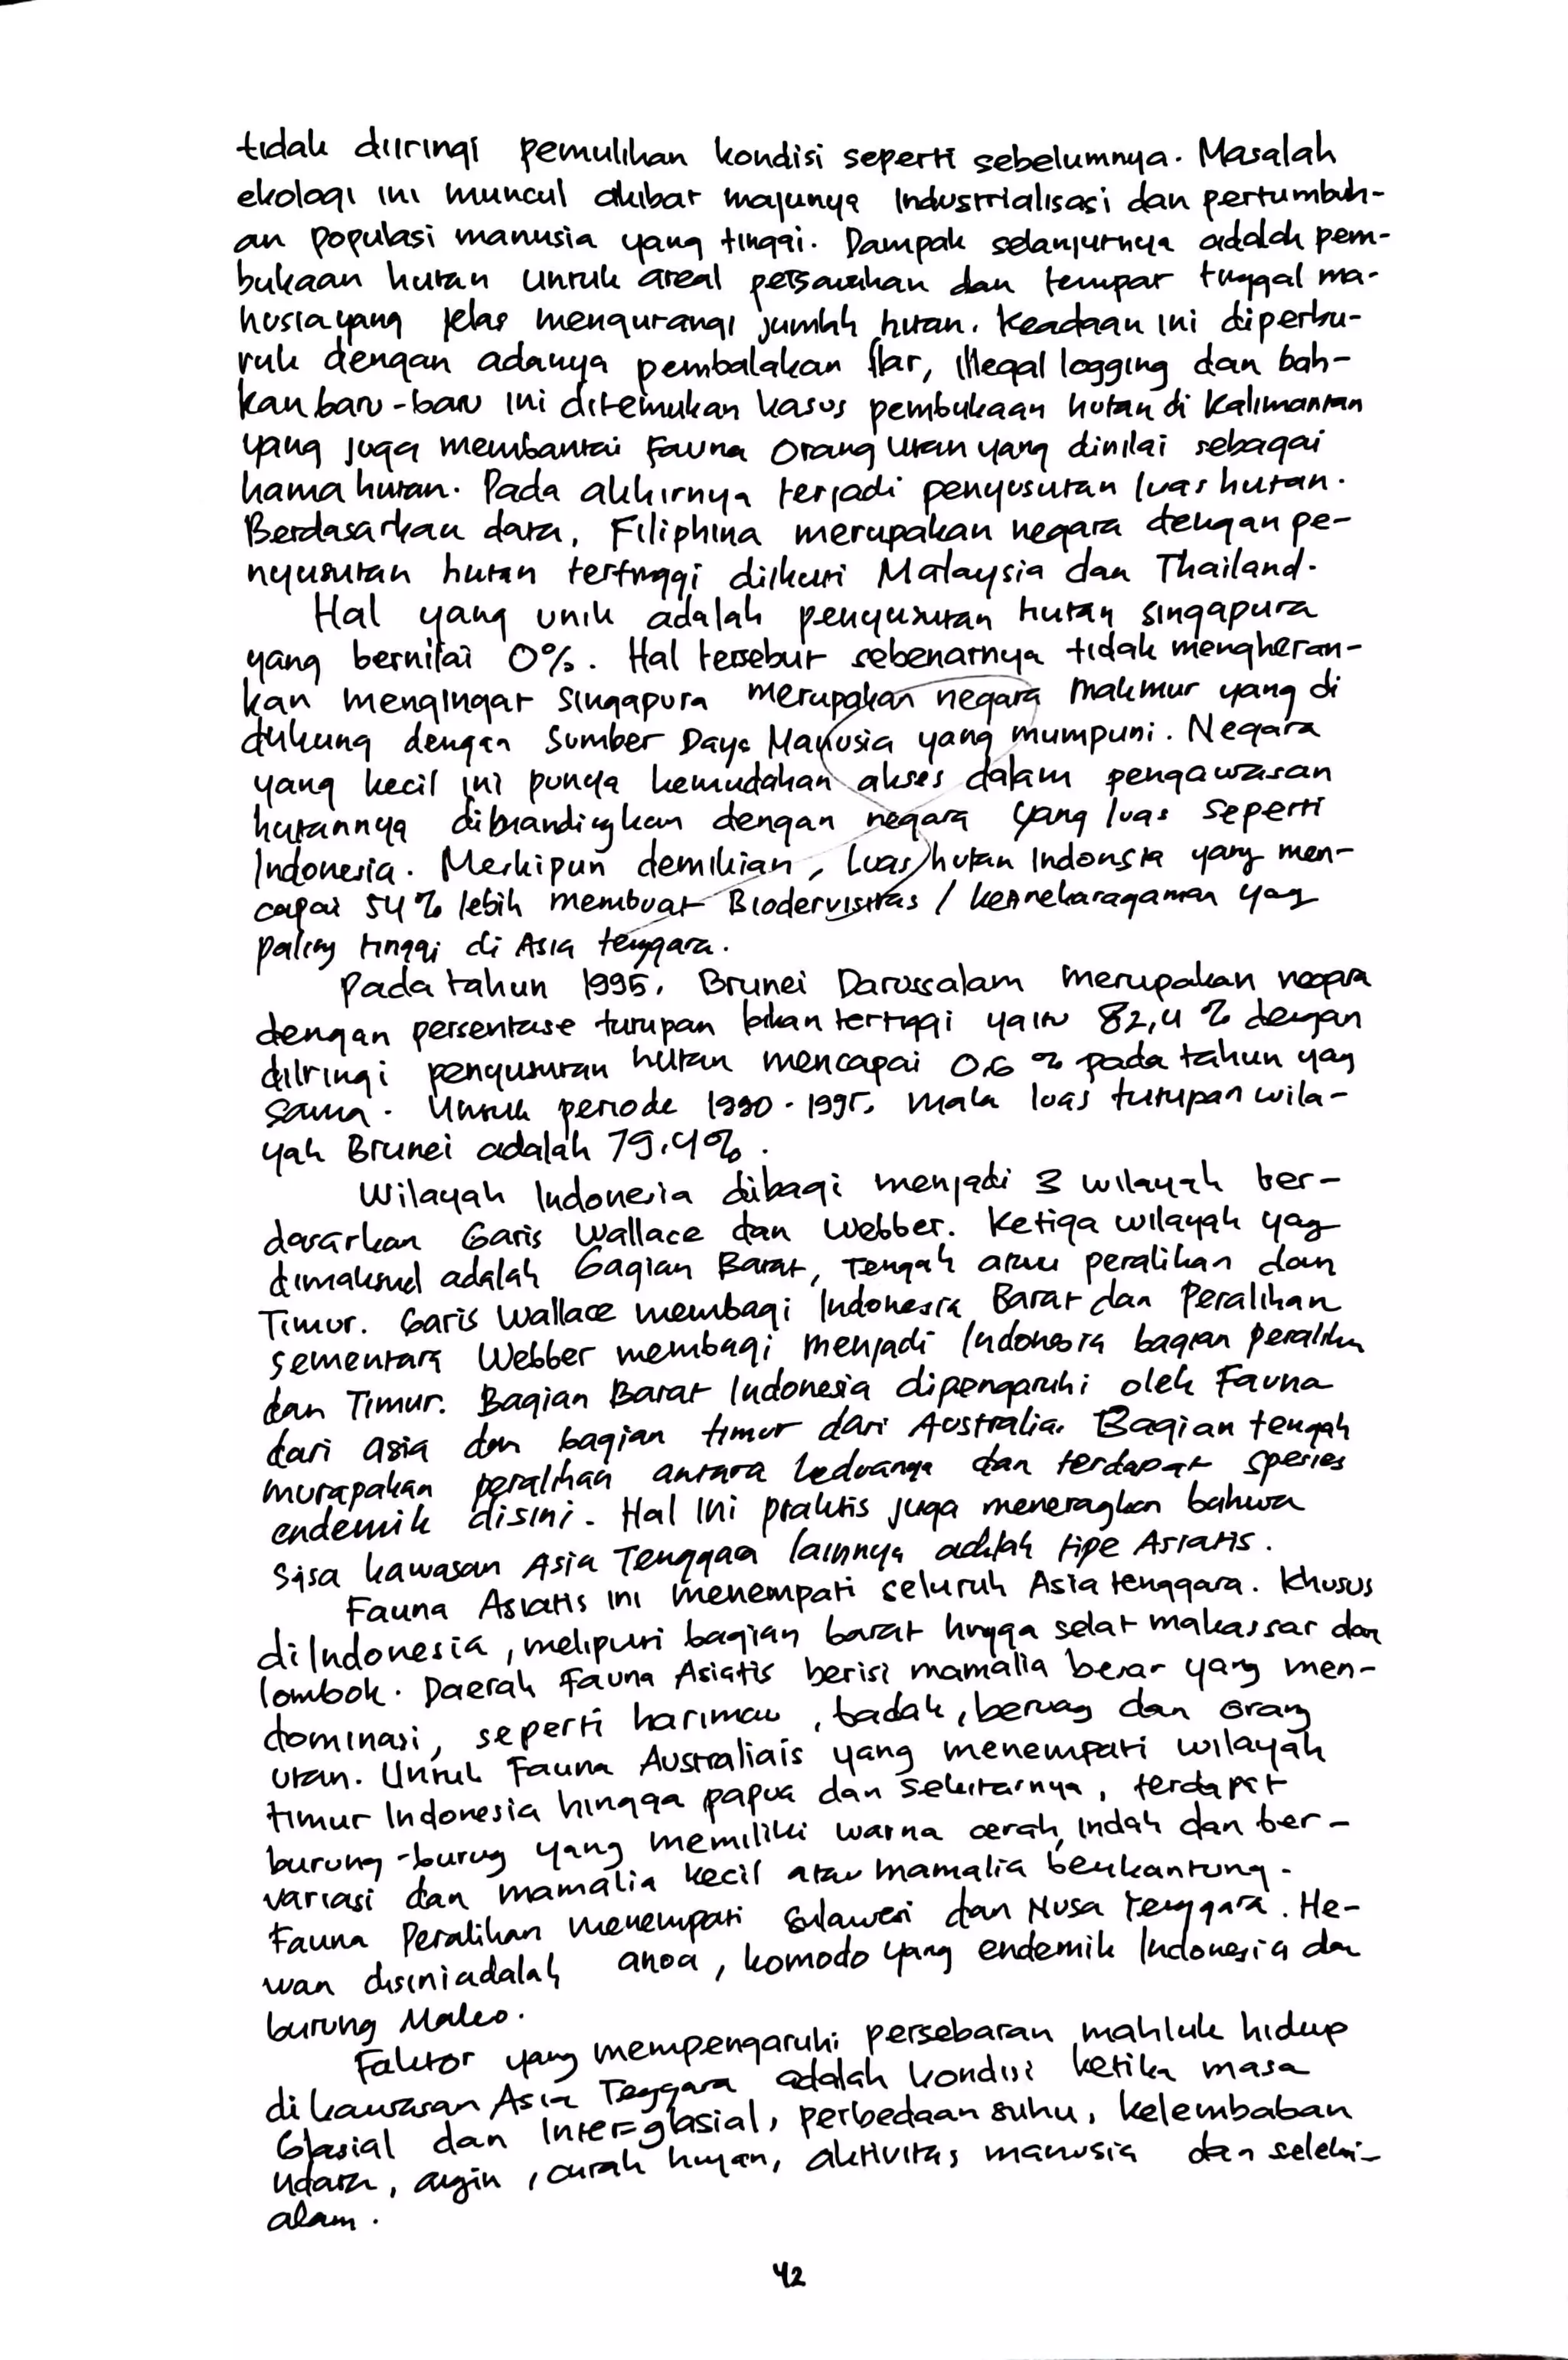 tidak diiringi pemulihan kondisi seperti sebelumnya. Masalah
ekologi ini muncul akibat majunya Industrialisasi dan pertumbuh-
an populasi manusia yang tinggi. Dampak selanjutnya adalah pem-
bukaan hutan untuk areal persawahan dan tempat tinggal ma-
nusia yang jelas mengurangi jumlah hutan. Keadaan ini diperbu-
ruk dengan adanya pembalakan liar, illegal logging dan bah-
kan baru-baru ini ditemukan kasus pembukaan hutan di Kalimantan
yang juga membantai Fauna Orang Utan yang dinilai sebagai
hama hutan. Pada akhirnya terjadi penyusutan luas hutan.
Berdasarkan data, Filiphina merupakan negara dengan pe-
nyusutan hutan tertinggi diikuti Malaysia dan Thailand.
Hal yang unik adalah penyusutan hutan singapura
yang bernilai 0%. Hal tersebut sebenarnya tidak mengheran-
kan mengingat Singapura merupakan negara makmur yang di
dukung dengan Sumber Daya Manusia yang mumpuni. Negara
yang kecil ini punya kemudahan akses dalam pengawasan
hutannya dibandingkan dengan negara yang luas seperti
Indonesia. Meskipun demikian, luas hutan Indonesia yang men-
capai 54% lebih membuat Biodervisitas / keanekaragaman yag
paling tinggi di Asia tenggara.
Pada tahun 1995, Brunei Darussalam merupakan negara
dengan persentase tutupan lahan tertinggi yaitu 82,4% dengan
diiringi penyusutan hutan mencapai 0,6 % pada tahun yag
sama. Untuk periode 1990-1995, maka luas tutupan wila-
yah Brunei adalah 79,4%.
Wilayah Indonesia dibagi menjadi 3 wilayah ber-
dasarkan Garis Wallace dan Webber. Ketiga wilayah yag
dimaksud adalah bagian Barat, Tengah atau peralihan dan
Timur. Garis Wallace membagi Indonesia Barat dan Peralihan
sementara Webber membagi menjadi Indonesia bagian peralihan
dan Timur. Bagian Barat Indonesia dipengaruhi oleh Fauna
dari asia dan bagian timur dari Australia. Bagian tengah
murapakan peralihan antara keduanya dan terdapat spesies
endemik disini. Hal ini praktis juga meneragkan bahwa
sisa kawasan Asia Tenggara lainnya adalah tipe Asiatis.
Fauna Asiatis ini menempati seluruh Asia tenggara. Khusus
di Indonesia, meliputi bagian barat hingga selat makassar dan
lombok. Daerah Fauna Asiatis berisi mamalia besar yang men-
dominasi, seperti harimau, badak, beruag dan orang
utan. Untuk Fauna Australiais yang menempati wilayah
timur Indonesia hingga papua dan sekitarnya, terdapat
burung-burug yang memiliki warna cerah, indah dan ber-
variasi dan mamalia kecil atau mamalia berkantung.
Fauna Peralihan menempati Sulawesi dan Nusa Tenggara. He-
wan disini adalah anoa, komodo yang endemik Indonesia dan
burung Maleo.
Faktor yang mempengaruhi persebaran mahluk hidup
di kawasan Asia Teggara adalah kondisi ketika masa
Glasial dan Inter-glasial, perbedaan suhu, kelembaban
udara, angin, curah hujan, aktivitas manusia dan seleksi-
alam.
42